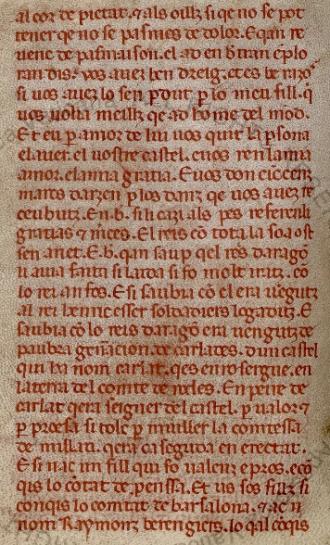 al cor de pietat. & als oillz si qe no se pot
tener qe no se pasmes de dolor. E qan re
uenc de pasmaison. el ao en b'tran e ploran
ran dis. vos auez ben dreig. et es be razo
si uos auez lo sen p'dut p lo meu fill. q
uos uolia meillz qe ad home del mon.
Et eu p amor de lui uos quit la p'sona
el auer. el uostre castel. e uos ren la mia
amor. e la mia gratia. E uos don cīc cenz
marcs dargen p los danz qe uos auez re
ceubutz. En .b. si li cazi als pes referenli
gratias & m'ces. El reis cō tota la soa ost
sen anet. E .b. qan saup qel reis daragō
li auia faita si laida si fo molt iratz. cō
lo rei anfos. E si saubia cō el era uēgutz
al rei henric esser soldadiers logaditz. E
saubia cō lo reis daragō era uengutz de
paubra gen'acion. de carlades. dun castel
qui ha nom carlat. qes en rosergue. en
la terra del comte de rodes. En peire de
carlat qera seigner del castel. p ualor &
p proesa si tolc p muiller la comtessa
de millau. qera caseguda en eretat.
E si nac un fill qui fo ualenz e pros. e cō
qis lo cōtat de p'enssa. Et us sos fillz si
conqis lo comtat de barsalona. & ac
nom Raymonz berengiers. lo qal cōqis